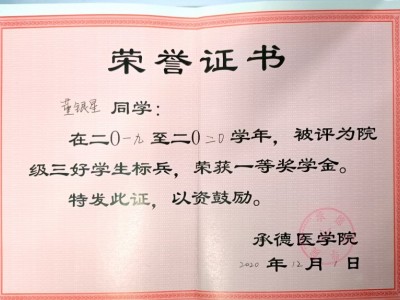 荣誉证书
董银星 同学：
在二〇一九至二〇二〇学年，被评为院
级三好学生标兵，荣获一等奖学金。
特发此证，以资鼓励。
承德医学院
2020 年 12 月 1 日